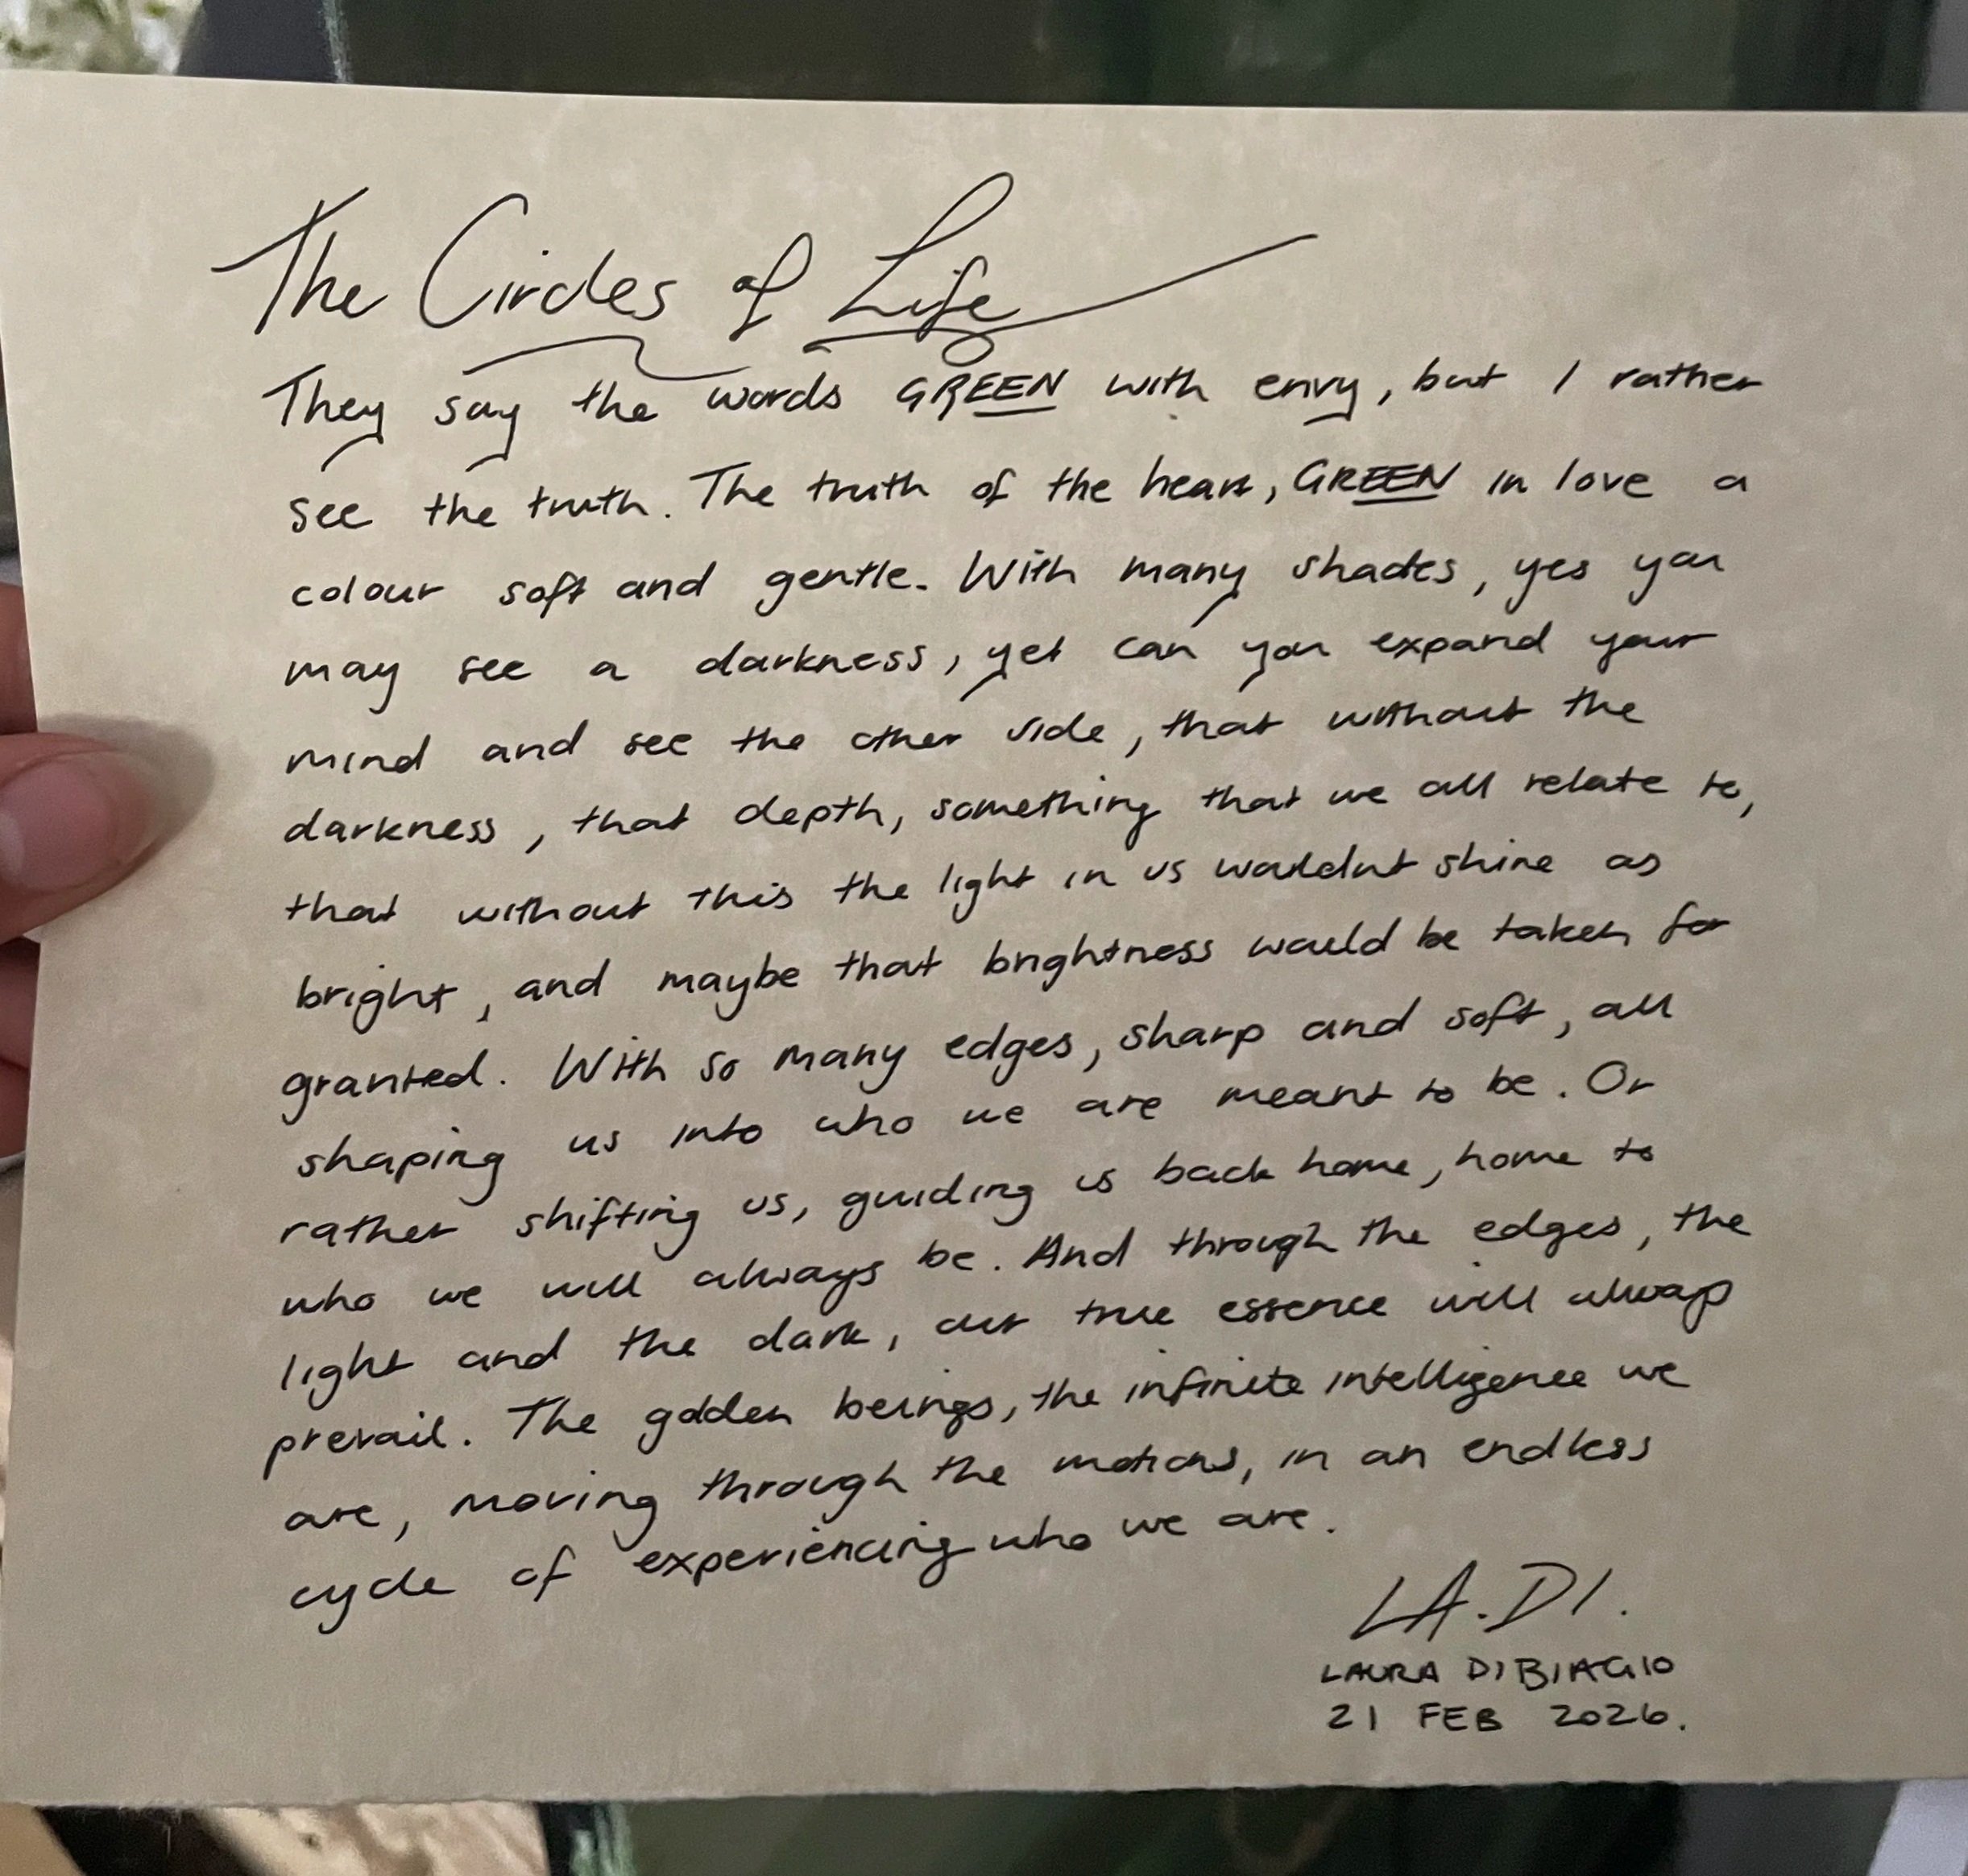 The Circles of Life
They say the words GREEN with envy, but I rather
see the truth. The truth of the heart, GREEN in love a
colour soft and gentle. With many shades, yes you
may see a darkness, yet can you expand your
mind and see the other side, that without the
darkness, that depth, something that we all relate to,
that without this the light in us wouldnt shine as
bright, and maybe that brightness would be taken for
granted. With so many edges, sharp and soft, all
shaping us into who we are meant to be. Or
rather shifting us, guiding us back home, home to
who we will always be. And through the edges, the
light and the dark, our true essence will always
prevail. The golden beings, the infinite intelligence we
are, moving through the motions, in an endless
cycle of experiencing who we are.
LA.DI.
LAURA DIBIAGIO
21 FEB 2026.